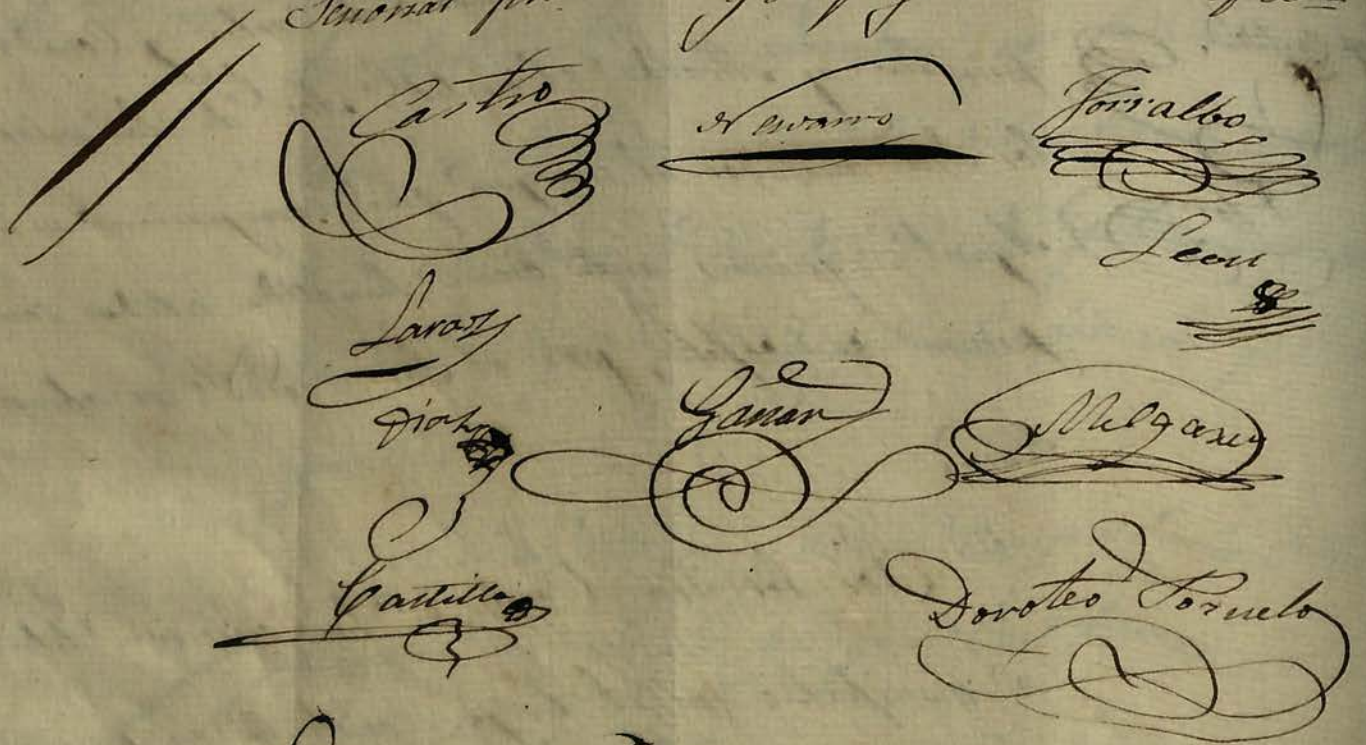 Castro Navarro Torralbo
Leon
Diaz Gañan Melgarejo
Castilla Doroteo Pozuelo